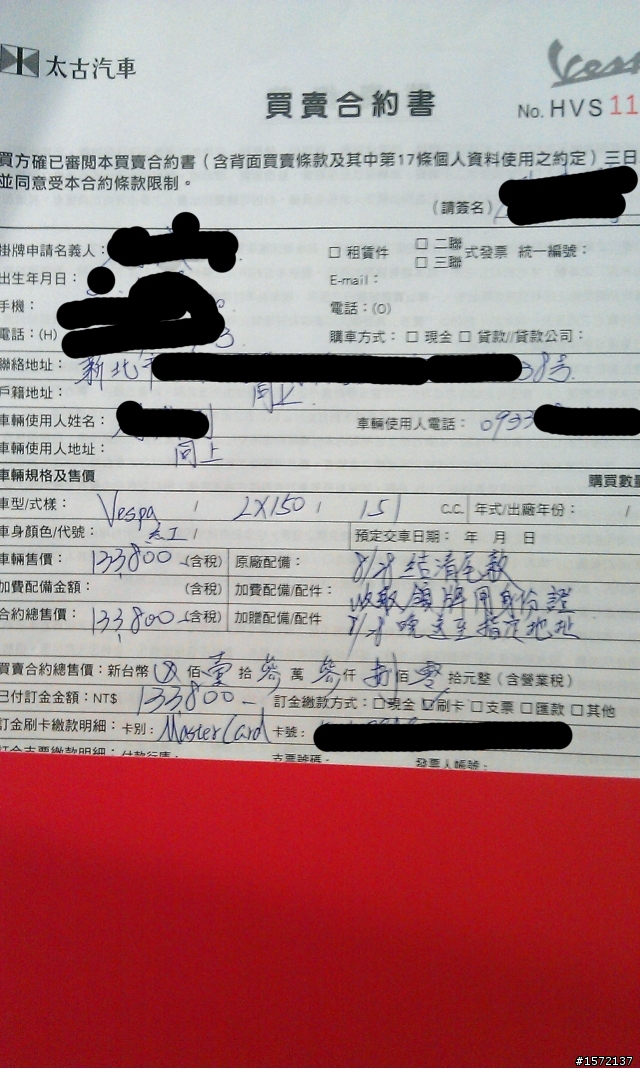 太古汽車
Vesp
買賣合約書
No. HVS 11
買方確已審閱本買賣合約書（含背面買賣條款及其中第17條個人資料使用之約定）三日
並同意受本合約條款限制。
（請簽名）
掛牌申請名義人： □ 租賃件 □ 二聯 □ 三聯 式發票 統一編號：
出生年月日： E-mail：
手機： 電話：(O)
電話：(H) 3 購車方式：□ 現金 □ 貸款//貸款公司：
聯絡地址： 新北市 38号
戶籍地址： 同上
車輛使用人姓名： 車輛使用人電話： 0933
車輛使用人地址 同上
車輛規格及售價 購買數量
車型/式樣： Vespa / LX150 / 151 C.C. 年式/出廠年份： /
車身顏色/代號： 紅 / 預定交車日期： 年 月 日
車輛售價： 133,800 (含稅) 原廠配備： 8/28 結清尾款
加費配備金額： (含稅) 加費配備/配件： 收取領牌用身份證
合約總售價： 133,800 (含稅) 加贈配備/配件 8/28 晚送至指定地址
買賣合約總售價：新台幣 佰 壹 拾 參 萬 參 仟 捌 佰 零 拾元整（含營業稅）
已付訂金金額：NT$ 133800 訂金繳款方式：□現金 ☑刷卡 □支票 □匯款 □其他
訂金刷卡繳款明細：卡別： MasterCard 卡號：
訂金支票繳款明細：付款行庫： 支票號碼： 發票人帳號：
#1572137